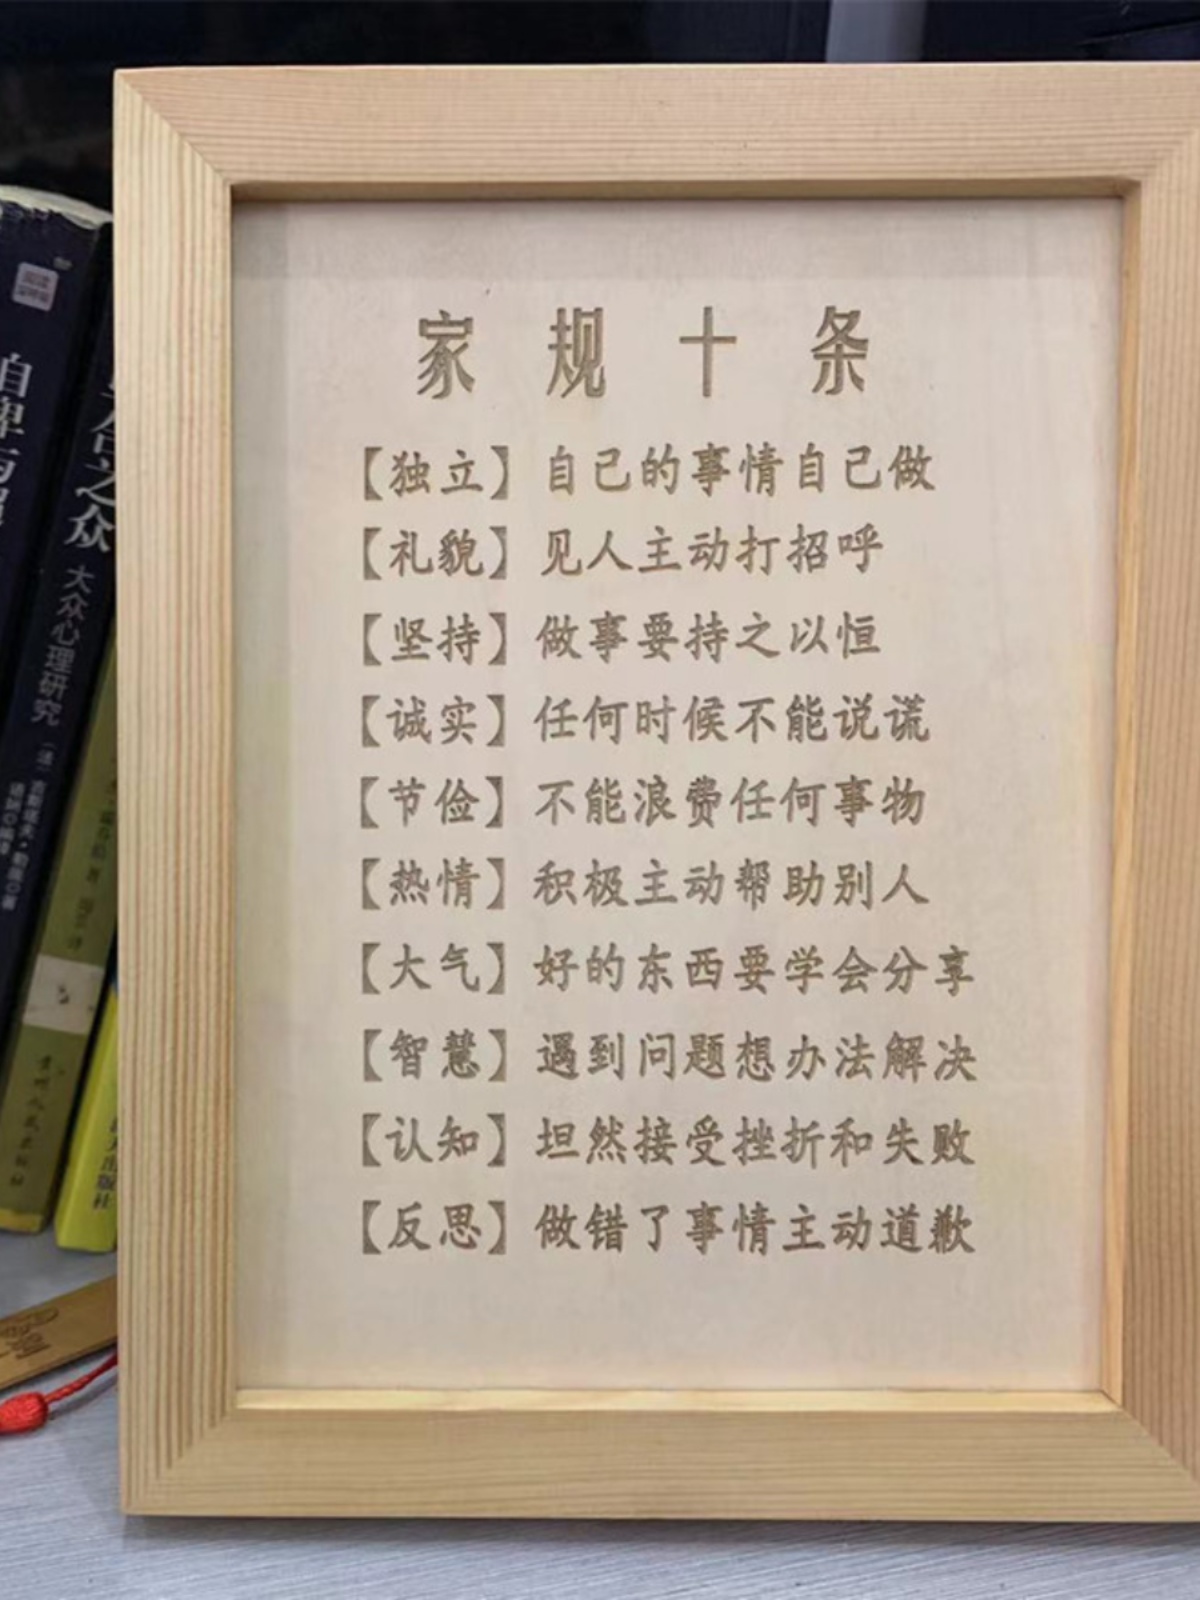 家规十条
【独立】自己的事情自己做
【礼貌】见人主动打招呼
【坚持】做事要持之以恒
【诚实】任何时候不能说谎
【节俭】不能浪费任何事物
【热情】积极主动帮助别人
【大气】好的东西要学会分享
【智慧】遇到问题想办法解决
【认知】坦然接受挫折和失败
【反思】做错了事情主动道歉
自卑与
之众
大众心理研究